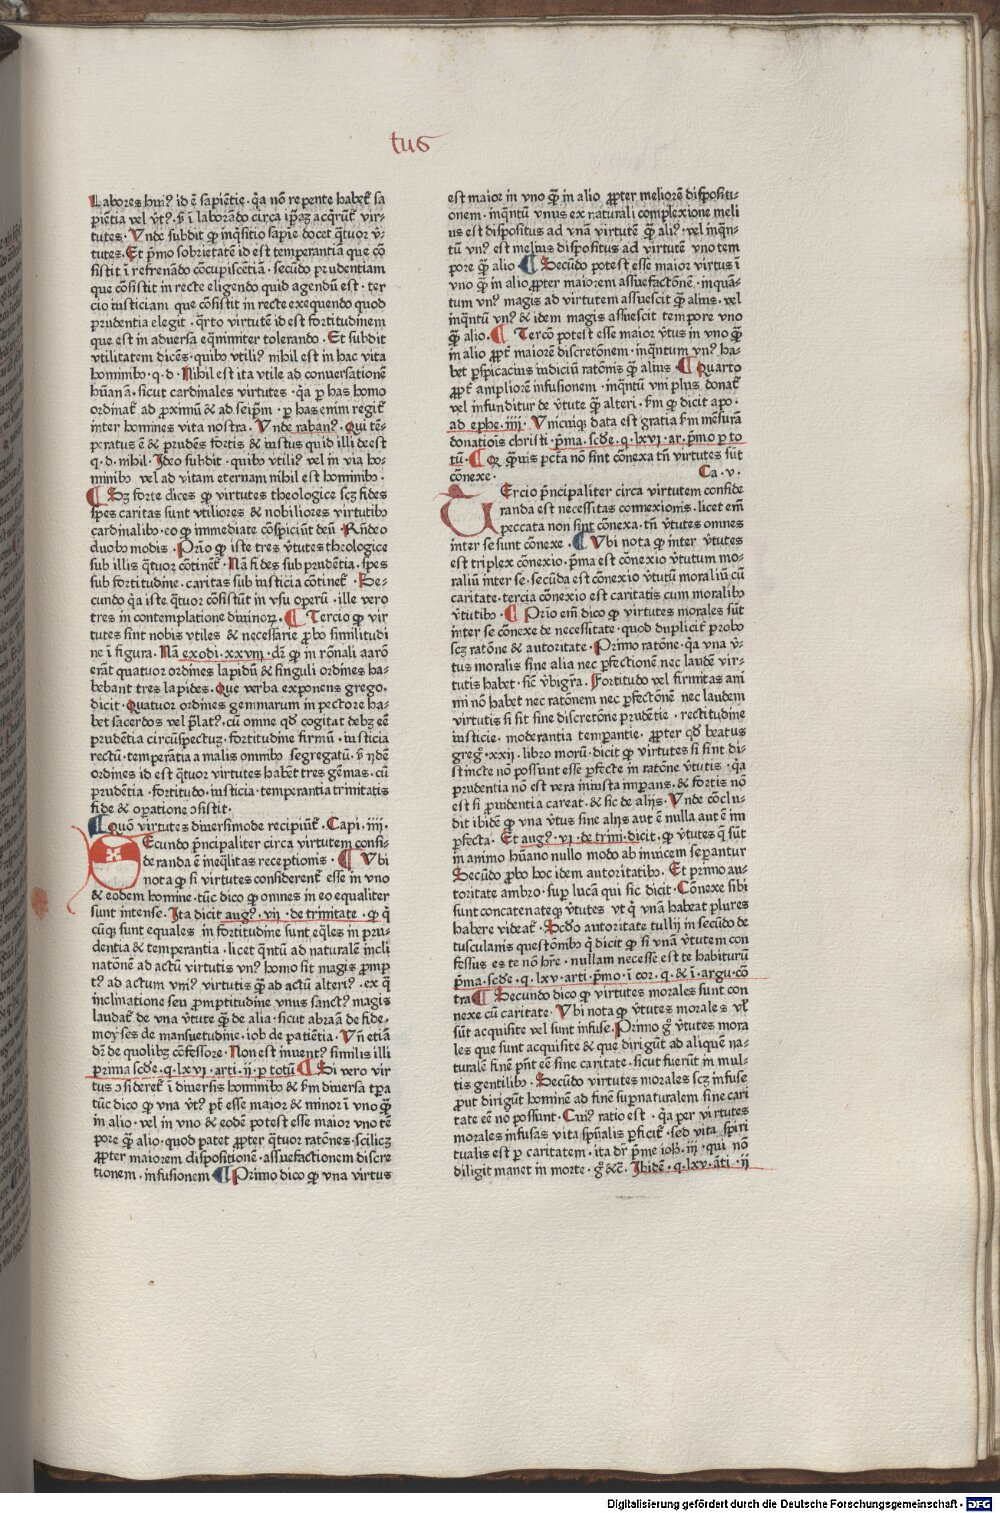 tus
Labores hui⁹ id ē sapiētie · q̄a nō repente habet̄ sa
piētia vel v̄t⁹ · s̄ i laborādo circa ip̄aȝ acq̄rūt̄ vir-
tutes · Vnde subdit ꝙ inq̄sitio sapīe docet q̄tuor v̄-
tutes · Et p̄mo sobrietatē id est temperantiā que cō
sistit ī refrenādo cōcupiscētiā · secūdo prudentiam
que cōsistit in recte eligendo quid agendū est · ter
cio iusticiam que cōsistit in recte exequendo quod
prudentia elegit · q̄rto virtutē id est fortitudinem
que est in aduersa eq̄nimiter tolerando · Et subdit
vtilitatem dicēs · quibꝰ vtili⁹ nibil est in hac vita
hominibꝰ · q · d · Nihil est ita vtile ad conuersationē
hūanā · sicut cardinales virtutes · q̄a ꝑ has homo
ordinat̄ ad ꝓximū & ad seip̄m · ꝑ has enim regit̄
inter homines vita nostra · Vnde raban⁹ · Qui tē-
peratus ē & prudēs fortis & iustus quid illi deest
q · d · nibil · Ideo subdit · quibꝰ vtili⁹ vel in via ho-
minibꝰ vel ad vitam eternam nibil est hominibꝰ ·
¶ Sȝ forte dices ꝙ virtutes theologice scȝ fides
spes caritas sunt vtiliores & nobiliores virtutibꝰ
cardinalibꝰ · eo ꝙ immediate cōspiciūt deū · Rn̄deo
duobꝰ modis · Prīo ꝙ iste tres v̄tutes theologice
sub illis q̄tuor cōtinēt̄ · Nā fides sub prudētia · spes
sub fortitudine · caritas sub iusticia cōtinet̄ · Se-
cundo q̄a iste q̄tuor cōsistūt in vsu operū · ille vero
tres in contemplatione diuinoꝝ · ¶ Tercio ꝙ vir
tutes sint nobis vtiles & necessarie ꝓbo similitudi
ne ī figura · Nā exodi · xxviij · dr̄ ꝙ in rōnali aarō
erāt quatuor ordines lapidū & singuli ordines ha-
bebant tres lapides · Que verba exponens grego ·
dicit · Quatuor ordines gemmarum in pectore ha-
bet sacerdos vel p̄lat⁹ · cū omne qd̄ cogitat debȝ eē
prudētia circūspectuȝ · fortitudine firmū · iusticia
rectū · temperātia a malis omnibꝰ segregatū · v̄ ijdē
ordines id est q̄tuor virtutes habēt tres gēmas · cū
prudētia · fortitudo · iusticia · temperantia trinitatis
fide & oꝑatione ↄsistit ·
¶ Quō virtutes diuersimode recipiūt̄ · Capi · iiij ·
SEcundo p̄ncipaliter circa virtutem consi-
deranda ē ineq̄litas receptionis · ¶ Vbi
nota ꝙ si virtutes considerent̄ esse in vno
& eodem homine · tūc dico ꝙ omnes in eo equaliter
sunt intense · Ita dicit aug⁹ · vij · de trinitate · ꝙ q̄
cūq̄ sunt equales in fortitudine sunt eq̄les in pru-
dentia & temperantia · licet q̄ntū ad naturalē incli
natōnē ad actū virtutis vn⁹ homo sit magis promp
t⁹ ad actum vni⁹ virtutis q̄ꝫ ad actū alteri⁹ · ex q̄
inclinatione seu promptitudine vnus sanct⁹ magis
laudat̄ de vna v̄tute q̄ꝫ de alia · sicut abraā de fide ·
moyses de mansuetudine · iob de patiētia · Vn̄ etiā
dr̄ de quolibȝ cōfessore · Non est inuent⁹ similis illi
prima scd̄e · q · lxvi · arti · ij · ꝑ totū ¶ Si vero vir
tus ↄsideret̄ ī diuersis hominibꝰ & s̄m diuersa tꝑa
tūc dico ꝙ vna v̄t⁹ pt̄ esse maior & minor ī vno q̄ꝫ
in alio · vel in vno & eodē potest esse maior vno tē
pore q̄ꝫ alio · quod patet ꝓpter q̄tuor ratōnes · scilicȝ
ꝓpter maiorem dispositionē · assuefactionem discre
tionem · infusionem ¶ Primo dico ꝙ vna virtus
est maior in vno q̄ꝫ in alio ꝓpter meliorē dispositi-
onem · inq̄ntū vnus ex naturali complexione meli
us est dispositus ad vnā virtutē q̄ꝫ ali⁹ · vel inq̄n-
tū vn⁹ est melius dispositus ad virtutē vno tem
pore q̄ꝫ alio ¶ Secūdo potest esse maior virtus ī
vno q̄ꝫ in alio ꝓpter maiorem assuefactōnē · inquā-
tum vn⁹ magis ad virtutem assuescit q̄ꝫ alius · vel
inq̄ntū vn⁹ & idem magis assuescit tempore vno
q̄ꝫ alio · ¶ Tercō potest esse maior v̄tus in vno q̄ꝫ
in alio ꝓpt̄ maiorē discretōnem · inq̄ntum vn⁹ ha-
bet ꝑspicacius iudiciū ratōnis q̄ꝫ alius ¶ Quarto
ꝓpt̄ ampliorē infusionem · inq̄ntū vni plus donat̄
vel infunditur de v̄tute q̄ꝫ alteri · s̄m ꝙ dicit apo ·
ad ephe · iiij · Vnicuiq̄ data est gratia s̄m mēsurā
donatiōis christi · p̄ma scd̄e · q · lxvi · ar · p̄mo ꝑ to
tū · ¶ Qꝝ q̄ꝫuis pctā nō sint cōnexa tn̄ virtutes sūt
cōnexe · Ca · v ·
TErcio p̄ncipaliter circa virtutem conside
randa est necessitas connexionis · licet em̄
peccata non sint cōnexa · tn̄ v̄tutes omnes
inter se sunt cōnexe · ¶ Vbi nota ꝙ inter v̄tutes
est triplex cōnexio · p̄ma est cōnexio v̄tutum mo-
raliū inter se · secūda est cōnexio v̄tutū moraliū cū
caritate · tercia cōnexio est caritatis cum moralibꝰ
v̄tutibꝰ · ¶ Prīo em̄ dico ꝙ virtutes morales sūt
inter se cōnexe de necessitate · quod duplicit̄ probo
scȝ ratōne & autoritate · Primo ratōne · q̄a vna v̄-
tus moralis sine alia nec ꝑfectionē nec laudē vir-
tutis habet · sic̄ v̄bigr̄a · Fortitudo vel firmitas ani
mi nō habet nec ratōnem nec ꝑfectōnē nec laudem
virtutis si sit sine discretōne prudētie · rectitudine
iusticie · moderantia temperantie · ꝓpter qd̄ beatus
greg⁹ · xxij · libro morū · dicit ꝙ virtutes si sint di-
stincte nō possunt esse ꝑfecte in ratōne v̄tutis · q̄a
prudentia nō est vera iniusta imꝑans · & fortis nō
est si ꝓuidentia careat · & sic de alijs · Vnde cōclu-
dit ibidē ꝙ vna v̄tus sine alijs aut ē nulla aut ē im
ꝑfecta · Et aug⁹ · vi · de trini · dicit · ꝙ v̄tutes q̄ sūt
in animo hūano nullo modo ab inuicem seꝑantur
Secūdo ꝓbo hoc idem autoritatibꝰ · Et primo au-
toritate ambro · suꝑ lucā qui sic dicit · Cōnexe sibi
sunt concatenateq̄ v̄tutes vt q̄ vnā habeat plures
habere videat̄ · Scd̄o autoritate tullij in secūdo de
tusculanis questōnibꝰ q̄ dicit ꝙ si vnā v̄tutem con
fessus es te nō hr̄e · nullam necesse est te habiturū
p̄ma · scd̄e · q · lxv · arti · p̄mo · ī cor · q · & ī · argu · cō
tra ¶ Secundo dico ꝙ virtutes morales sunt con
nexe cū caritate · Vbi nota ꝙ v̄tutes morales vl̄
sūt acquisite vel sunt infuse · Primo g⁰ v̄tutes mora
les que sunt acquisite & que dirigūt ad aliquē na-
turalē finē pn̄t eē sine caritate · sicut fuerūt in mul-
tis gentilibꝰ · Secūdo virtutes morales scȝ infuse
ꝓut dirigūt hominē ad finē supnaturalem sine cari
tate eē nō possunt · Cui⁹ ratio est · q̄a per virtutes
morales infusas vita sp̄ualis ꝑficit̄ · sed vita spiri
tualis est ꝑ caritatem · ita dr̄ p̄me ioh̄ · iij · qui nō
diligit manet in morte · g⁰ &c̄ · Ibidē · q · lxv · āti · ij
Digitalisierung gefördert durch die Deutsche Forschungsgemeinschaft - DFG